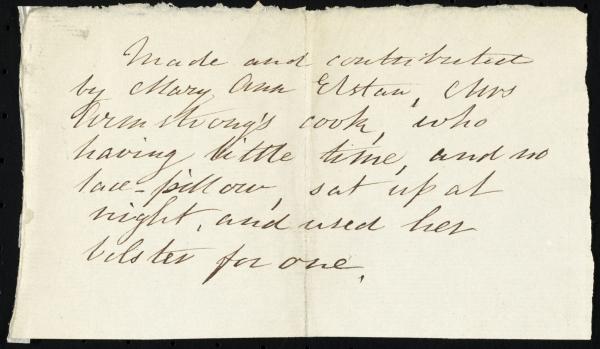 Made and contributed
by Mary Ann Elstan, Mrs
Armstrong's cook, who
having little time, and no
lace-pillow, sat up at
night, and used her
bolster for one.